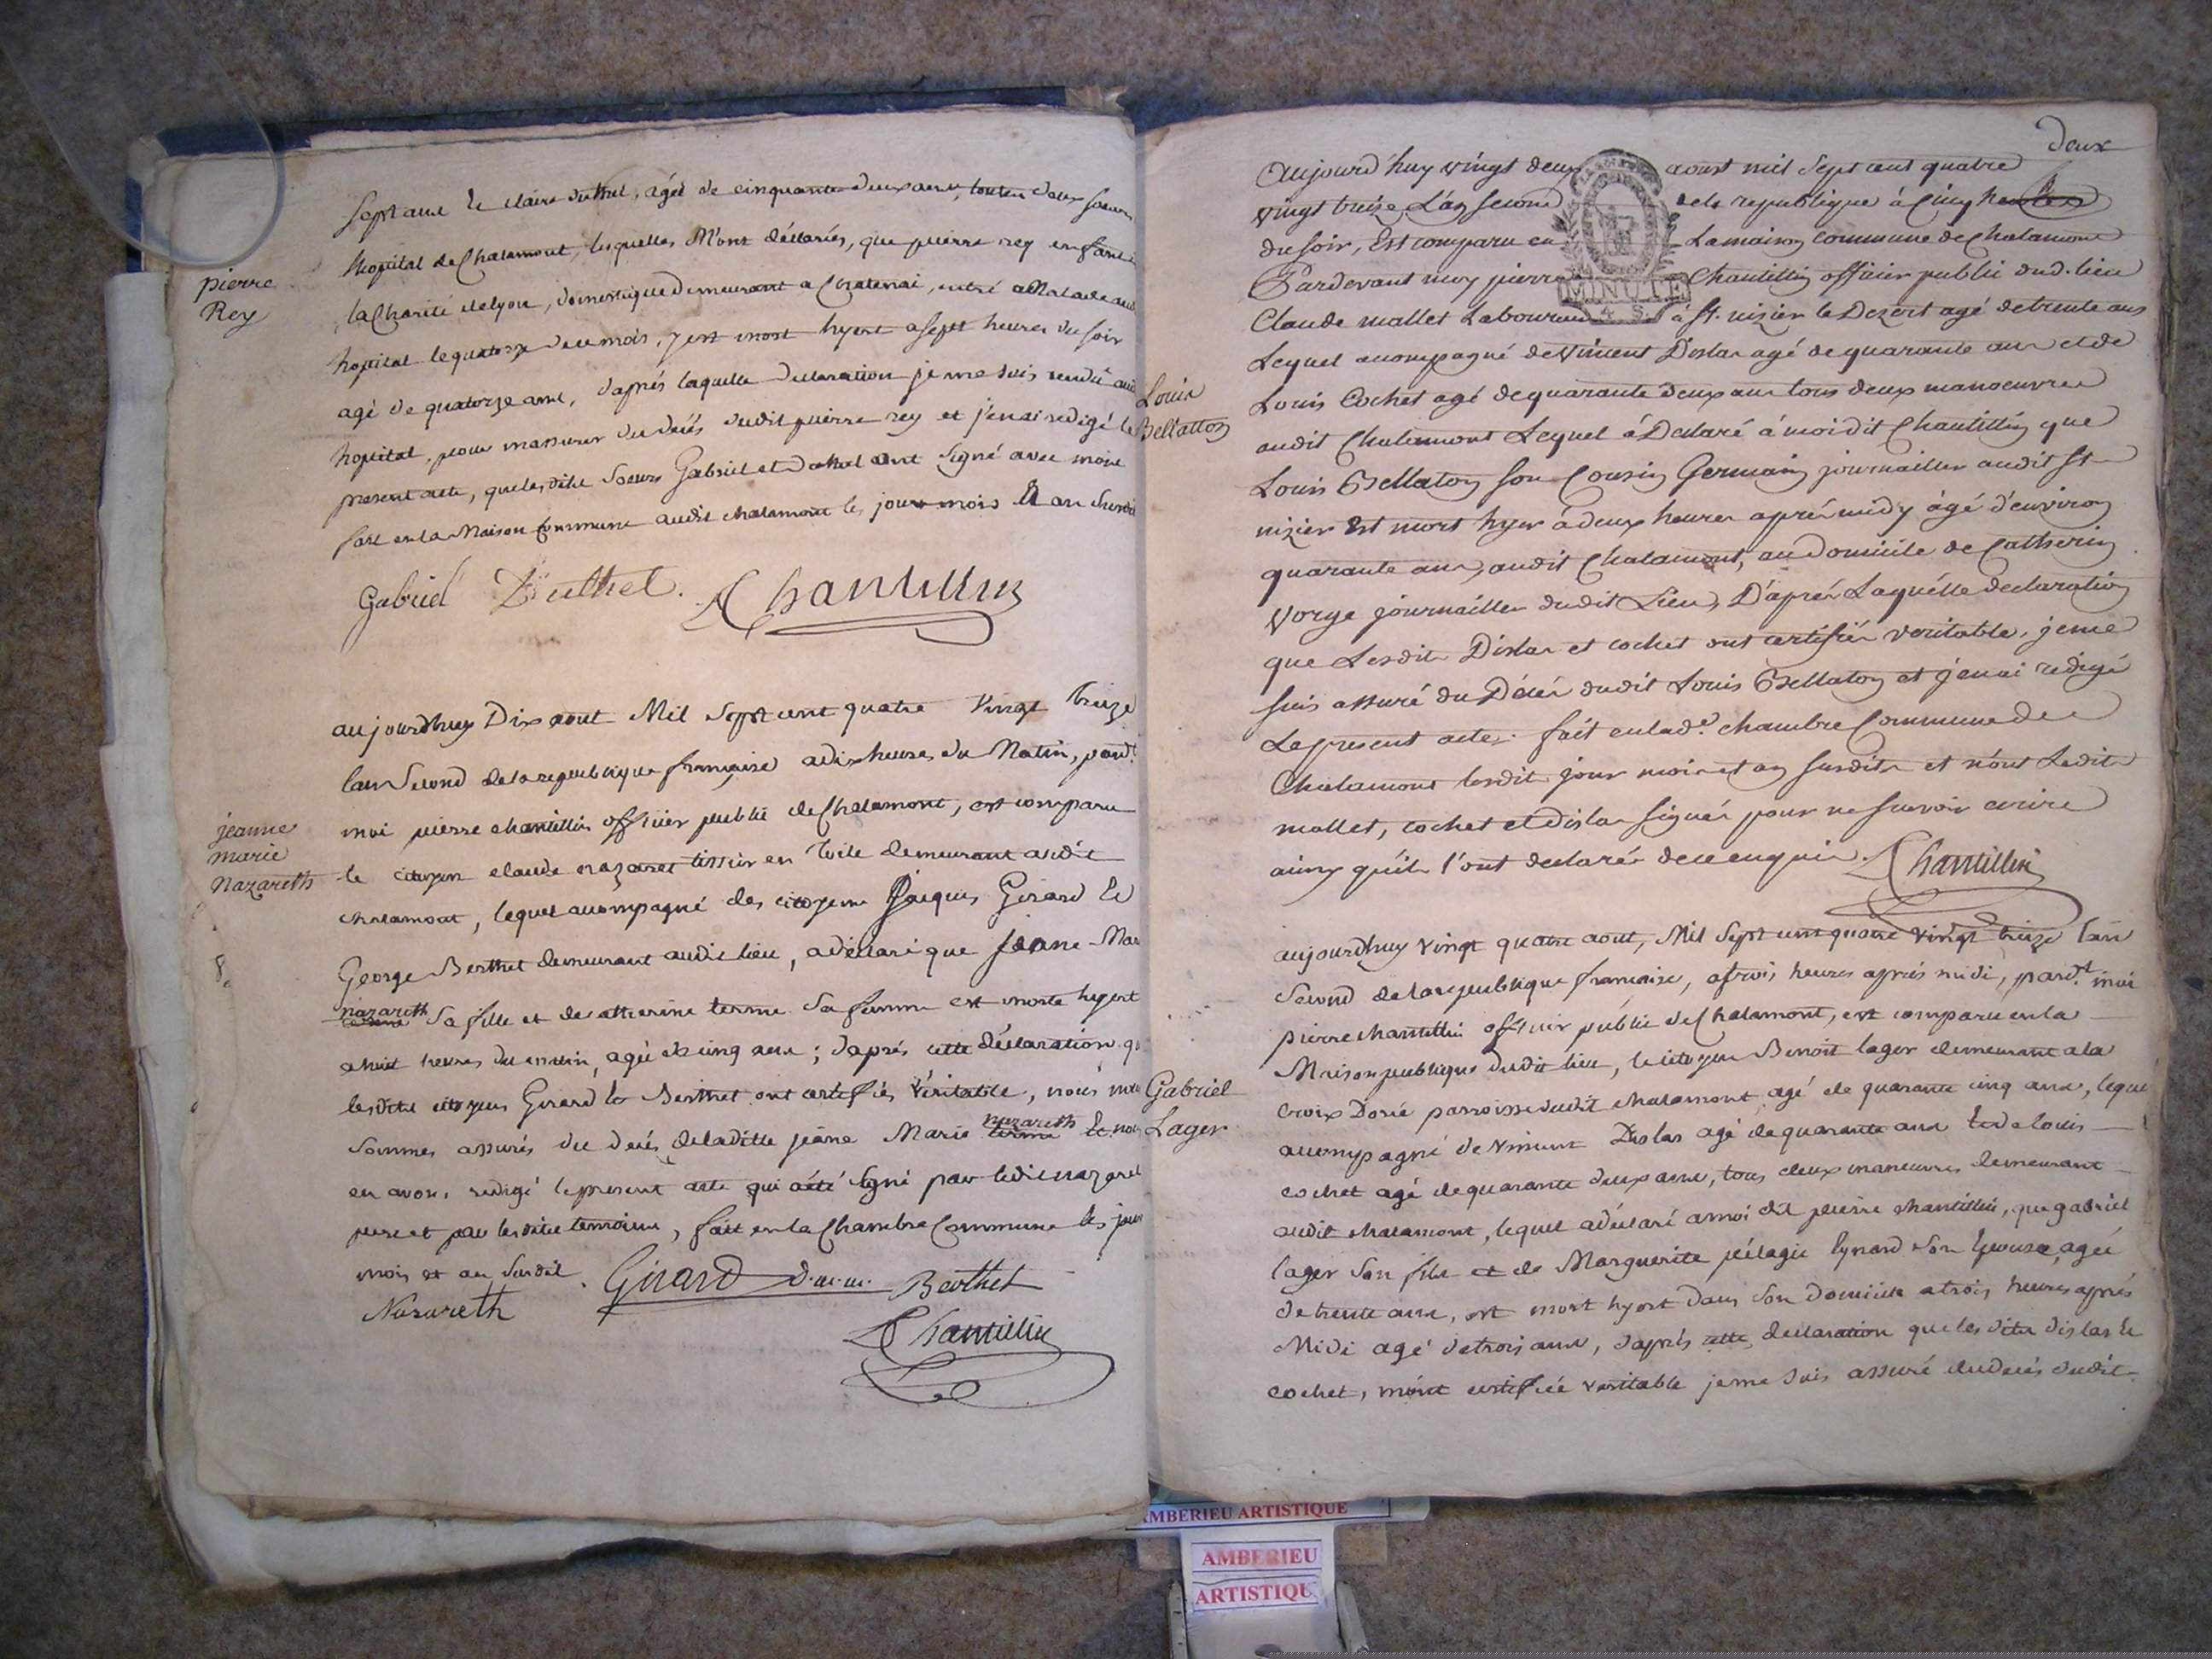 pierre
Rey
sept ans et claire duthel, agée de cinquante deux ans, toutes deux soeurs
hopital de Chalamont, lesquelles M'ont déclarées, que pierre rey enfant
la Charité de lyon, domestique demeurant a Chatenai, entré Malade
hopital le quatorze du mois, y est mort hyert a sept heures du soir
agé de quatorze ans, d'aprés laquelle declaration je me suis rendu
hopital, pour massurer du decés dudit pierre rey et j'en ai redigé le
present acte, que lesdites soeurs Gabriel et duthel ont signé avec moi
fait en la Maison Commune audit chalamont les jour mois et an susdit
Gabriel Duthel. Chantillin
jeanne
marie
nazareth
8.
aujourdhuy Dix aout Mil Sept cent quatre Vingt treize
l'an Second de la republique française a dix heures du Matin, pard.t
moi pierre chantillin officier public de Chalamont, est comparu
le citoyen claude nazaret tissier en toile demeurant audit
chalamont, lequel accompagné des citoyens Jacques Girard et
George Berthet demeurant audit lieu, a déclaré que Jeanne-Mar
nazareth
Sa fille et de catherine terme Sa femme est morte hyert
a huit heures du matin, agée de cinq ans; d'aprés cette déclaration q
lesdits citoyens Girard et Berthet ont certifiés Véritable, nous
Sommes assurés du decés de laditte jeanne Marie nazareth terme et
en avons redigé le present acte qui a été signé par ledit nazaret
pere et par lesdits temoins, fait en la Chambre Commune les jour
mois et an Susdit. Girard Berthet
Nazareth
Chantillin
deux
MINUTE
4 S
Louis
Bellaton
Aujourd'huy vingt deux aoust mil sept cent quatre
vingt treize L'an second de la republique à Cinq heures
du soir, Est comparu en La maison commune de Chalamont
Pardevant moy pierre Chantillin officier public dud. lieu
Claude mallet Laboureur à St. nizier le Dezert agé de trente ans
Lequel accompagné de Vincent Dislas agé de quarante ans et de
Louis Cochet agé de quarante deux ans tous deux manoeuvres
audit Chalamont Lequel à Declaré à moidit Chantillin que
Louis Bellaton son Cousin Germain journailler audit St
nizier Est mort hyer à deux heures aprés midy âgé d'environ
quarante ans, audit Chalamont, au Domicile de Catherin
Vorge journailler dudit Lieu, D'aprés Laquélle declaration
que Lesdits Dislas et cochet ont certifiés veritable, je me
suis assuré du Décés dudit Louis Bellaton et j'en ai redigé
Le present acte. fait en lad.e chambre Commune de
Chalamont lesdit jour mois et an susdits et n'ont Ledit
mallet, cochet et dislas signés pour ne savoir ecrire
ainsy qu'ils l'ont declarés de ce enquis. Chantillin
Gabriel
Lager
aujourdhuy vingt quatre aout, Mil Sept cent quatre vingt treize l'an
Second de la republique française, a trois heures aprés midi, pard.t moi
pierre chantillin officier public de Chalamont, est comparu en la
Maison publique dudit lieu, le citoyen Benoit lager demeurant a la
croix Dorié parroisse dudit chalamont agé de quarante cinq ans, leque
accompagné de Vincent Dislas agé de quarante ans et de louis
cochet agé de quarante deux ans, tous deux maneuvres demeurant
audit chalamont, lequel a déclaré a moi dit pierre chantillin, que gabriel
lager Son fils et de Marguerite pélagie Eynard Son Epouse, agée
de trente ans, est mort hyert dans Son domicile a trois heures aprés
Midi agé de trois ans, d'aprés cette declaration que les dits dislas et
cochet, m'ont certifiée veritable je me suis assuré du decés dudit
AMBERIEU ARTISTIQUE
AMBERIEU
ARTISTIQU